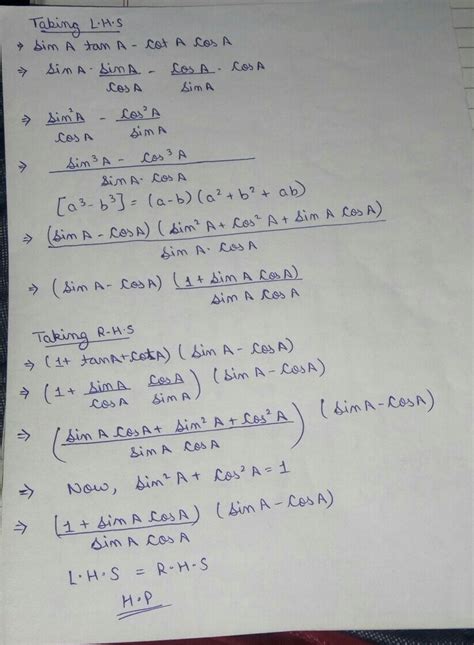 Taking L.H.S
→ Sin A tan A - Cot A Cos A
⇒ Sin A · Sin A / Cos A - Cos A / Sin A · Cos A
⇒ Sin²A / Cos A - Cos²A / Sin A
⇒ Sin³A - Cos³A / Sin A · Cos A
[a³-b³] = (a-b) (a²+b²+ab)
⇒ (Sin A - Cos A) (Sin²A + Cos²A + Sin A Cos A) / Sin A · Cos A
⇒ (Sin A - Cos A) (1 + Sin A Cos A) / Sin A Cos A
Taking R.H.S
⇒ (1+ tan A + Cot A) (Sin A - Cos A)
⇒ (1 + Sin A / Cos A Cos A / Sin A) (Sin A - Cos A)
⇒ (Sin A Cos A + Sin²A + Cos²A / Sin A Cos A) (Sin A - Cos A)
⇒ Now, Sin²A + Cos²A = 1
⇒ (1 + Sin A Cos A) / Sin A Cos A (Sin A - Cos A)
L.H.S = R.H.S
H.P